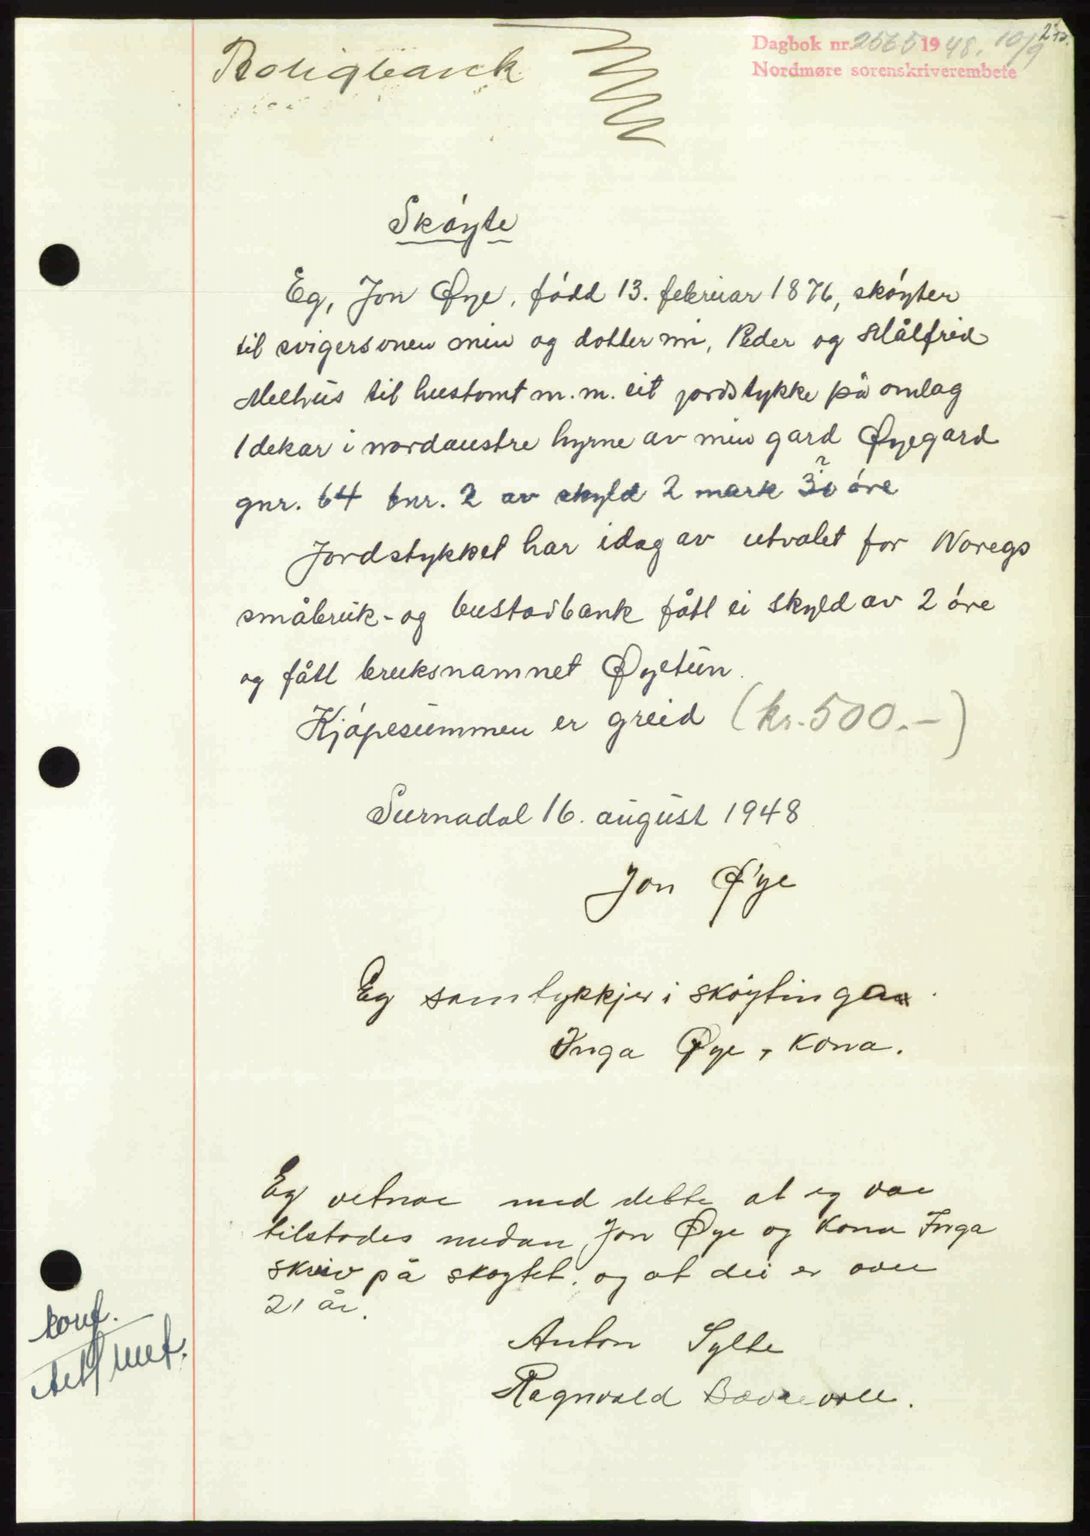 Boligbank
Dagbok nr. 2565 1948. 10/9
Nordmøre sorenskriverembete
Skøyte
Eg, Jon Øye, fødd 13. februar 1876, skøyter
til svigersonen min og dotter mi, Peder og Målfrid
Melhus til hustomt m.m. eit jordstykke på omlag
1 dekar i nordaustre hyrne av min gard Øyegard
gnr. 64 bnr. 2 av skyld 2 mark øre
Jordstykket har idag av utvalet for Noregs
småbruk- og bustadbank fått ei skyld av 2 øre
og fått bruksnamnet Øyetun.
Kjøpesummen er greid (kr. 500.-)
Surnadal 16. august 1948
Jon Øye
Eg samtykkjer i skøytinga
Inga Øye, kona.
Eg vetnar med dette at eg var
tilstades medan Jon Øye og kona Inga
skreiv på skøytet, og at dei er over
21 år.
Anton Sylte
Ragnvald Bævre
konf.